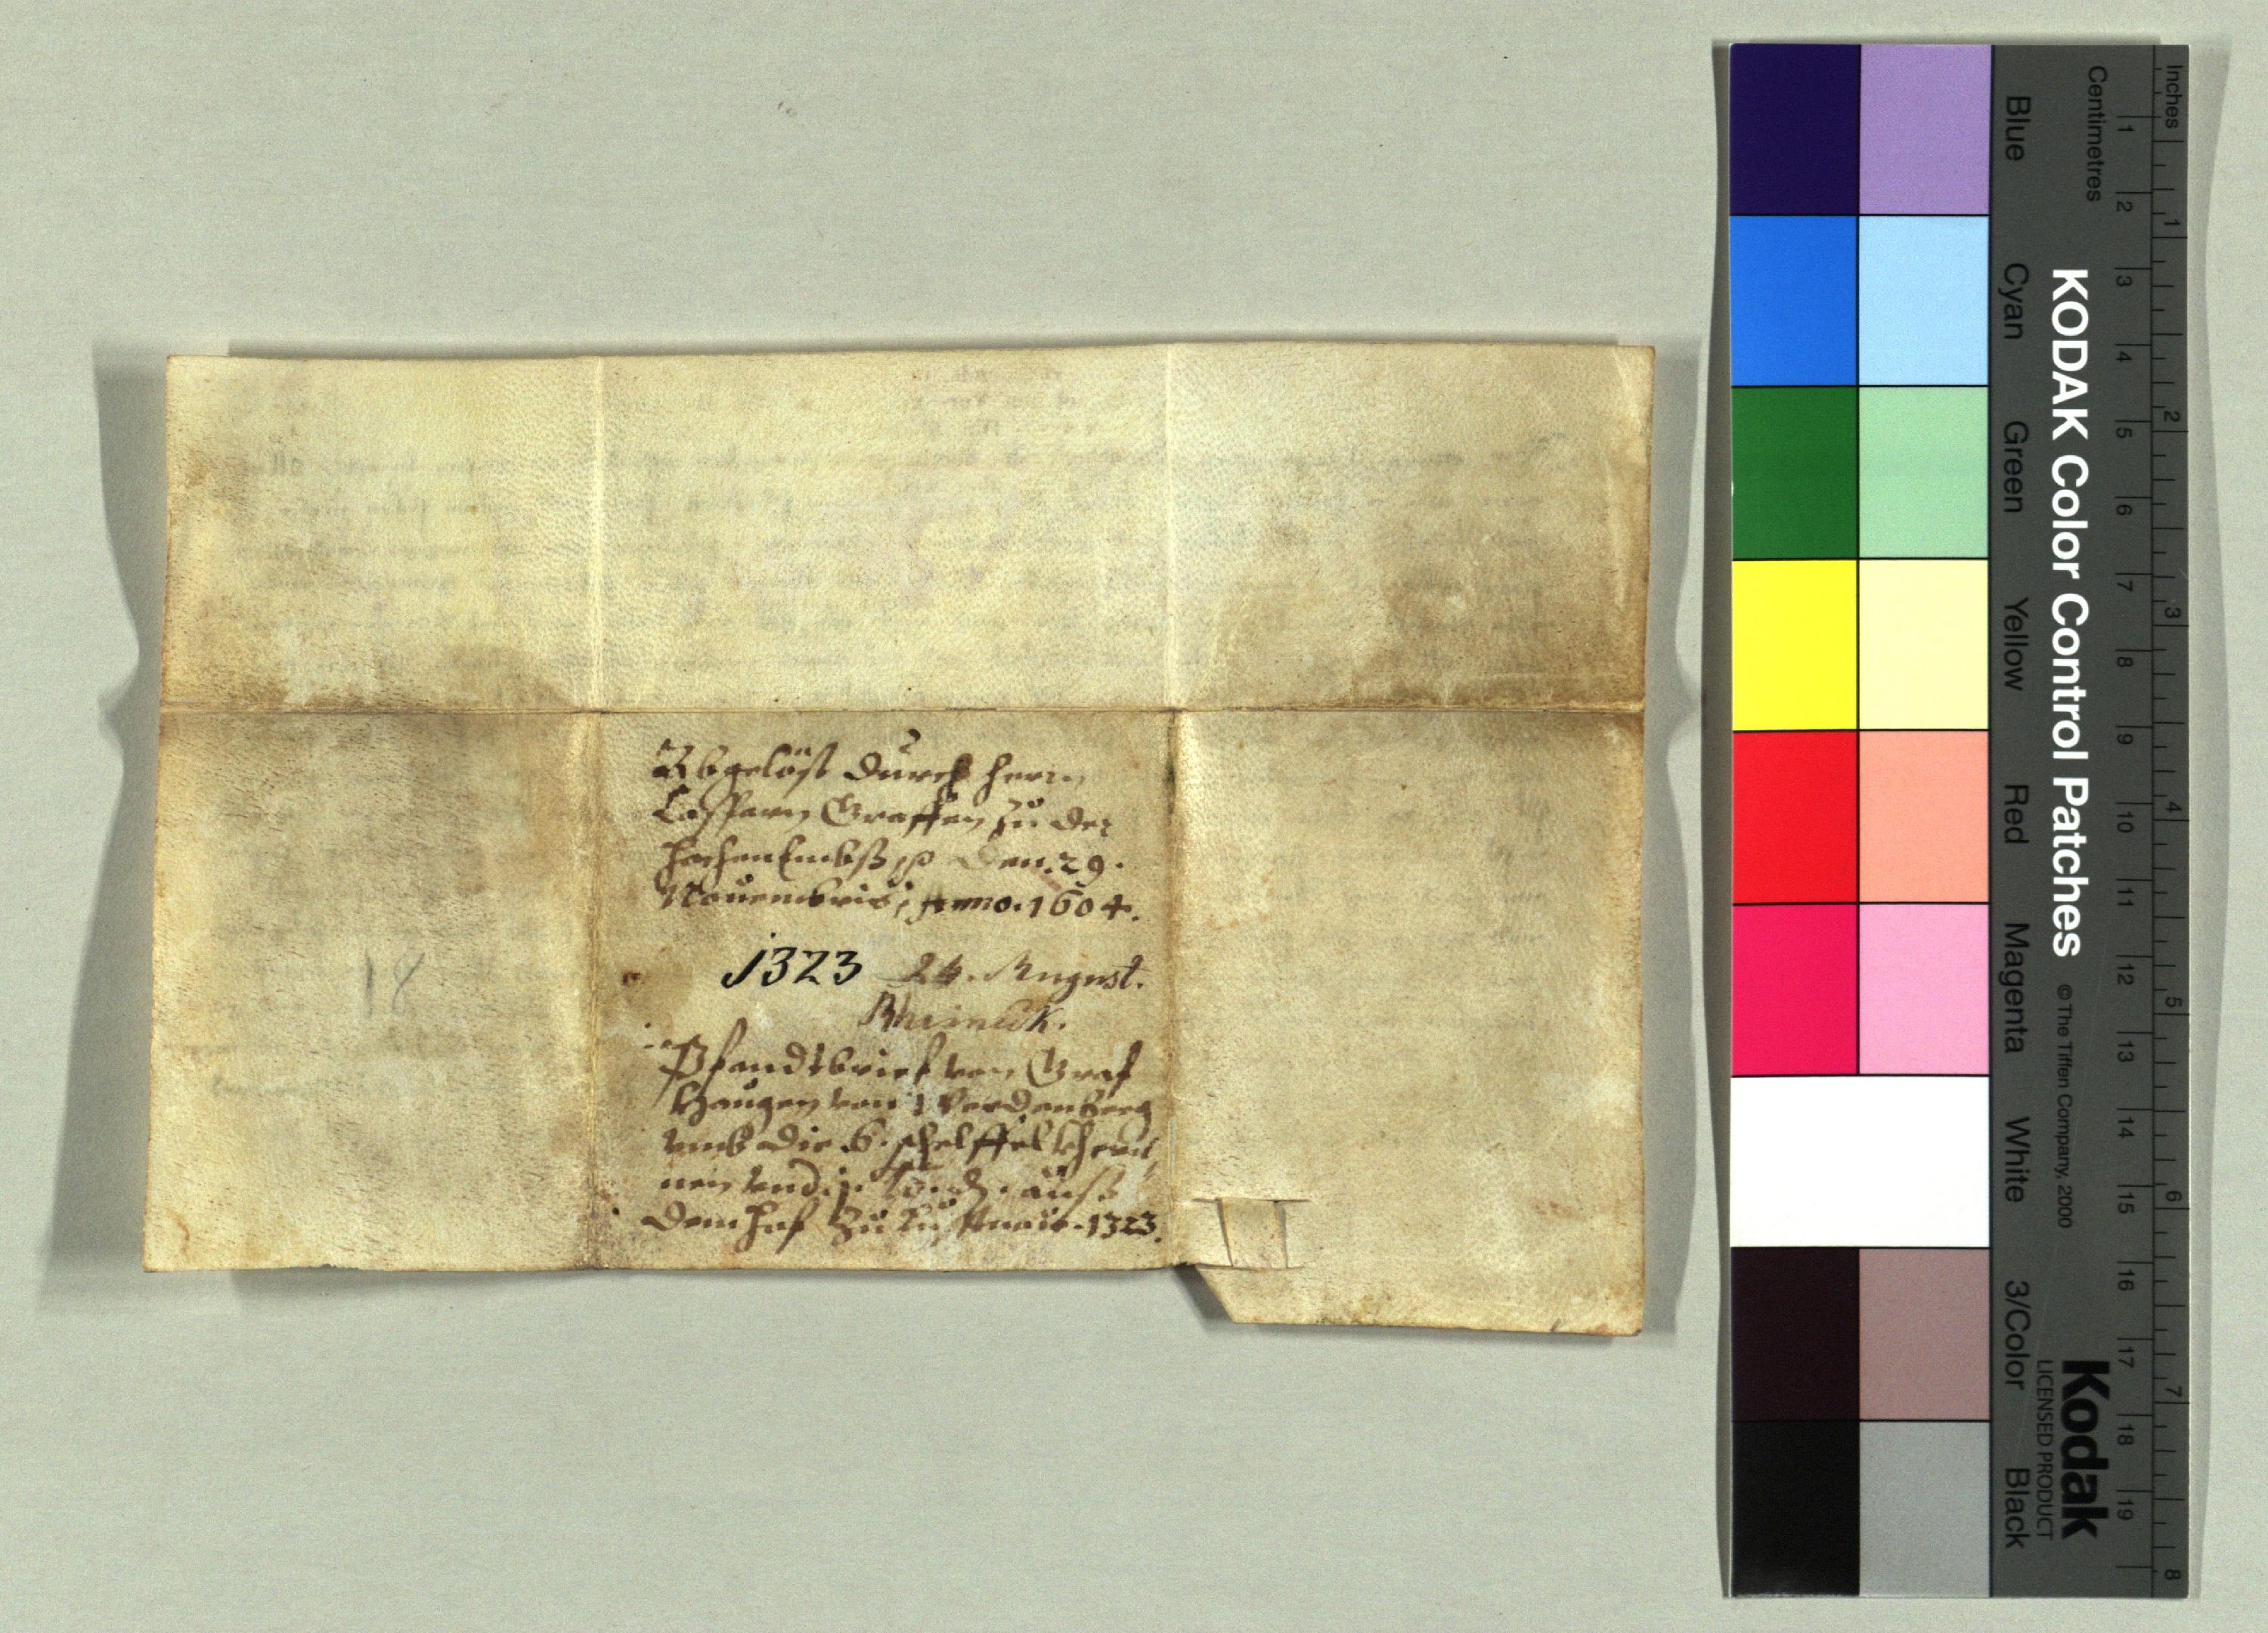 Abgelöst durch herrn
Casparn Graffen zu der
hochen Embß ꝛc Den. 29.
Nouembris, Anno. 1604.
1323 24. August.
Rheineck.
Pfandtbrief von Graf
Haugen von Werdenberg
umb die 6. scheffel khernen
nen und j. lb. ₰. auß
dem hof zu Lustnaw. 1323.
18
KODAK Color Control Patches
© The Tiffen Company, 2000
Kodak
LICENSED PRODUCT
Blue Cyan Green Yellow Red Magenta White 3/Color Black
Inches 1 2 3 4 5 6 7 8
Centimetres 1 2 3 4 5 6 7 8 9 10 11 12 13 14 15 16 17 18 19